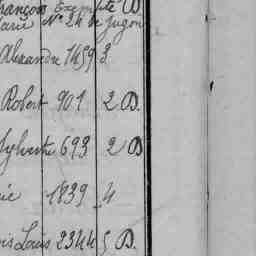 François Exempté D
Marie N° 24 de Jugon
Alexandre 1459 3
Robert 901 2 D.
Sylvestre 693 2 D
1839 4
Louis 2344 5 D.